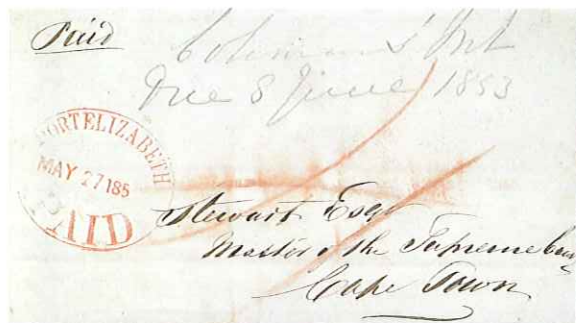 Paid
Due 8 June 1853
PORT ELIZABETH
MAY 27 185
PAID
Stewart Esqr
Master of the Supreme
Cape Town